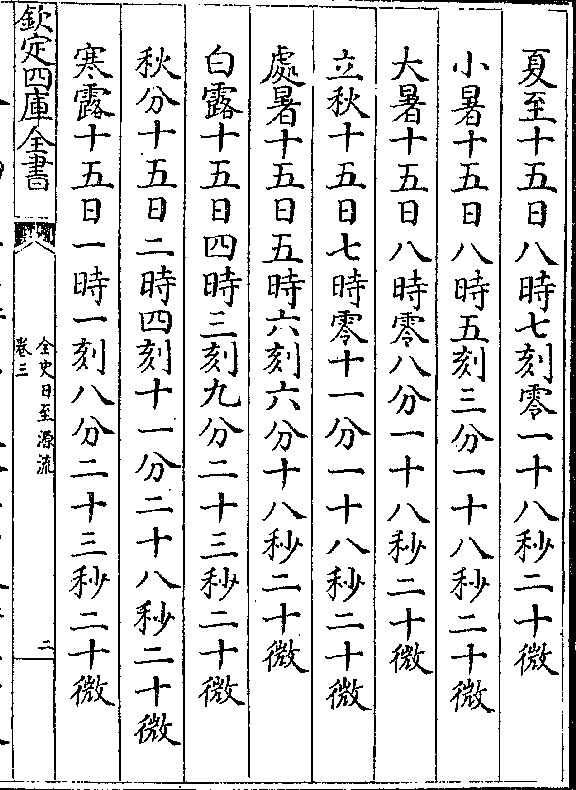 夏至十五日八時七刻零一十八秒二十微
小暑十五日八時五刻三分一十八秒二十微
大暑十五日八時零八分一十八秒二十微
立秋十五日七時零十一分一十八秒二十微
處暑十五日五時六刻六分十八秒二十微
白露十五日四時三刻九分二十三秒二十微
秋分十五日二時四刻十一分二十八秒二十微
寒露十五日一時一刻八分二十三秒二十微
欽定四庫全書
全史日至源流
卷三
二